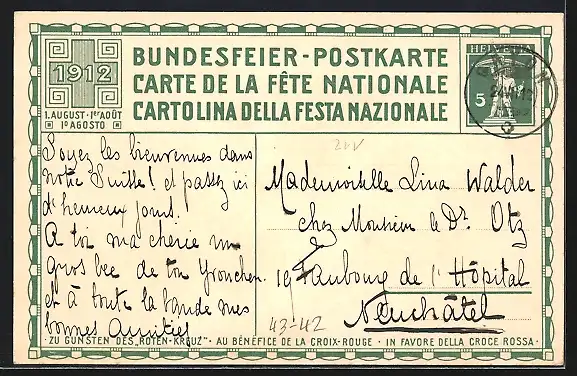 BUNDESFEIER-POSTKARTE
CARTE DE LA FÊTE NATIONALE
CARTOLINA DELLA FESTA NAZIONALE
1912
1. AUGUST · 1ER AOÛT
1º AGOSTO
HELVETIA
5
Soyez les bienvenues dans
notre Suisse! et passez ici
d'heureux jours!
A toi ma cherie un
gros bec de ton
et à toute la bande mes
bonnes Amitiés
Mademoiselle Lina Walder
chez Monsieur le Dr. Otz
19 Faubourg de l'Hôpital
Neuchâtel
43-42
· ZU GUNSTEN DES „ROTEN-KREUZ" · AU BÉNÉFICE DE LA CROIX-ROUGE · IN FAVORE DELLA CROCE ROSSA ·